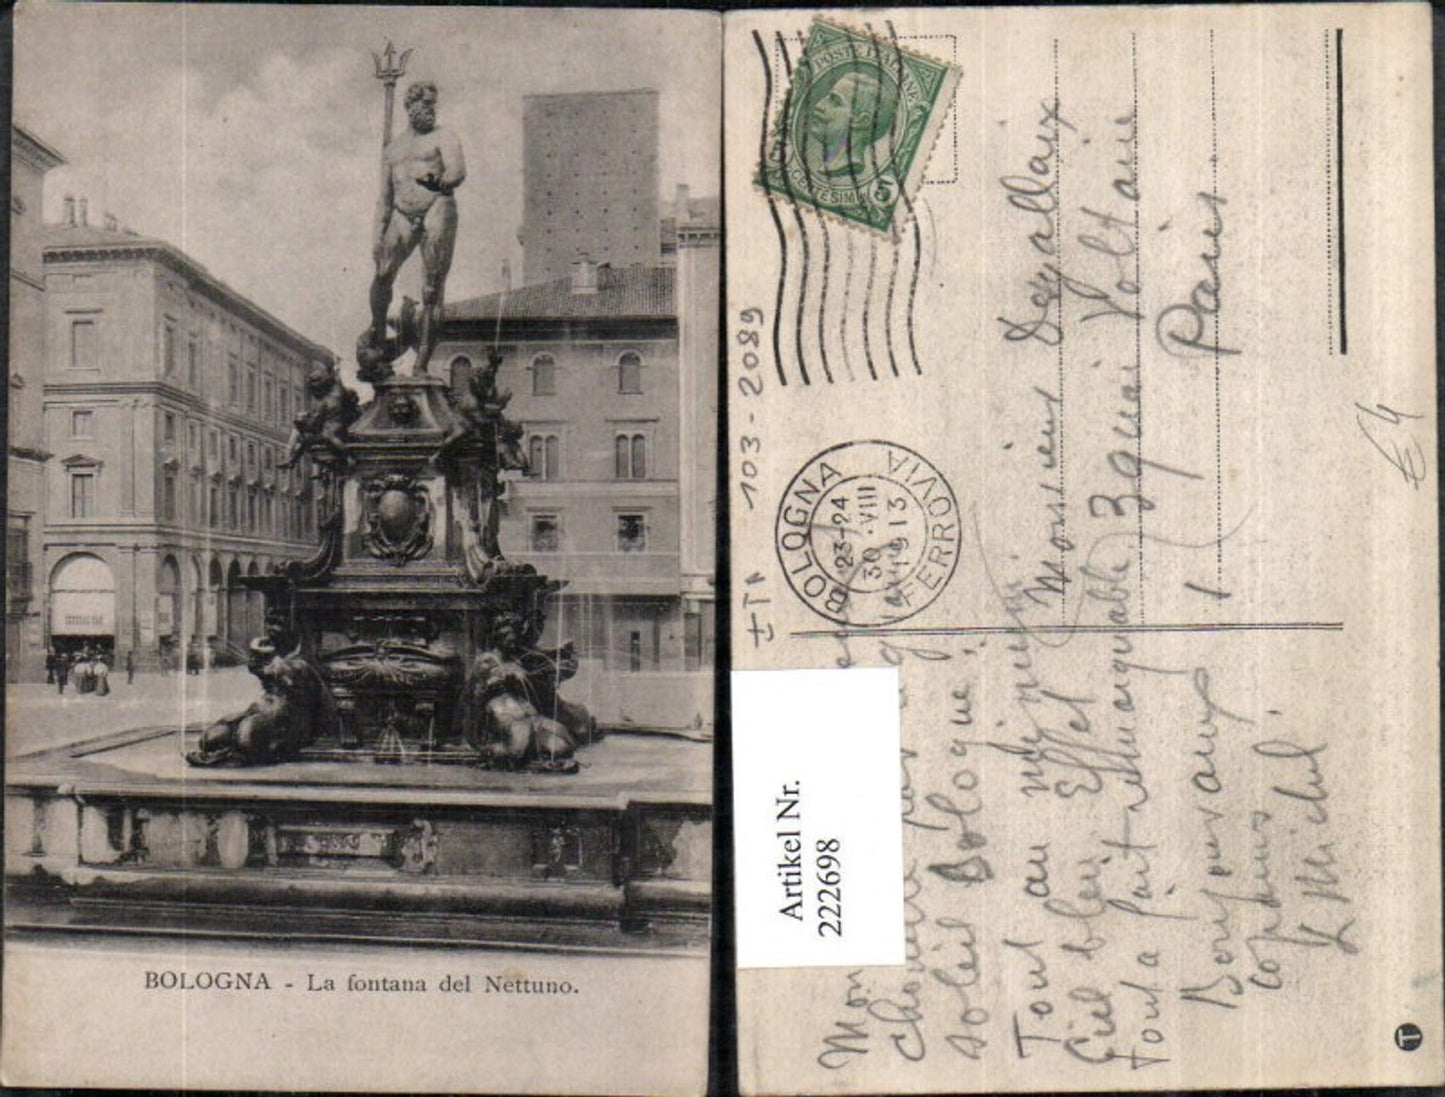 BOLOGNA - La fontana del Nettuno.
POSTE ITALIANE
CENTESIMI 5
ITA 103-2089
BOLOGNA FERROVIA
23-24
30.VIII
1913
Monsieur Degallaix
3 quai Voltaire
Paris
Artikel Nr.
222698
Mon
soleil Bologne!
Tout au
Ciel bleu Effet
tout a fait remarquable
Bonjour aux
copains
L Michel
€4
T